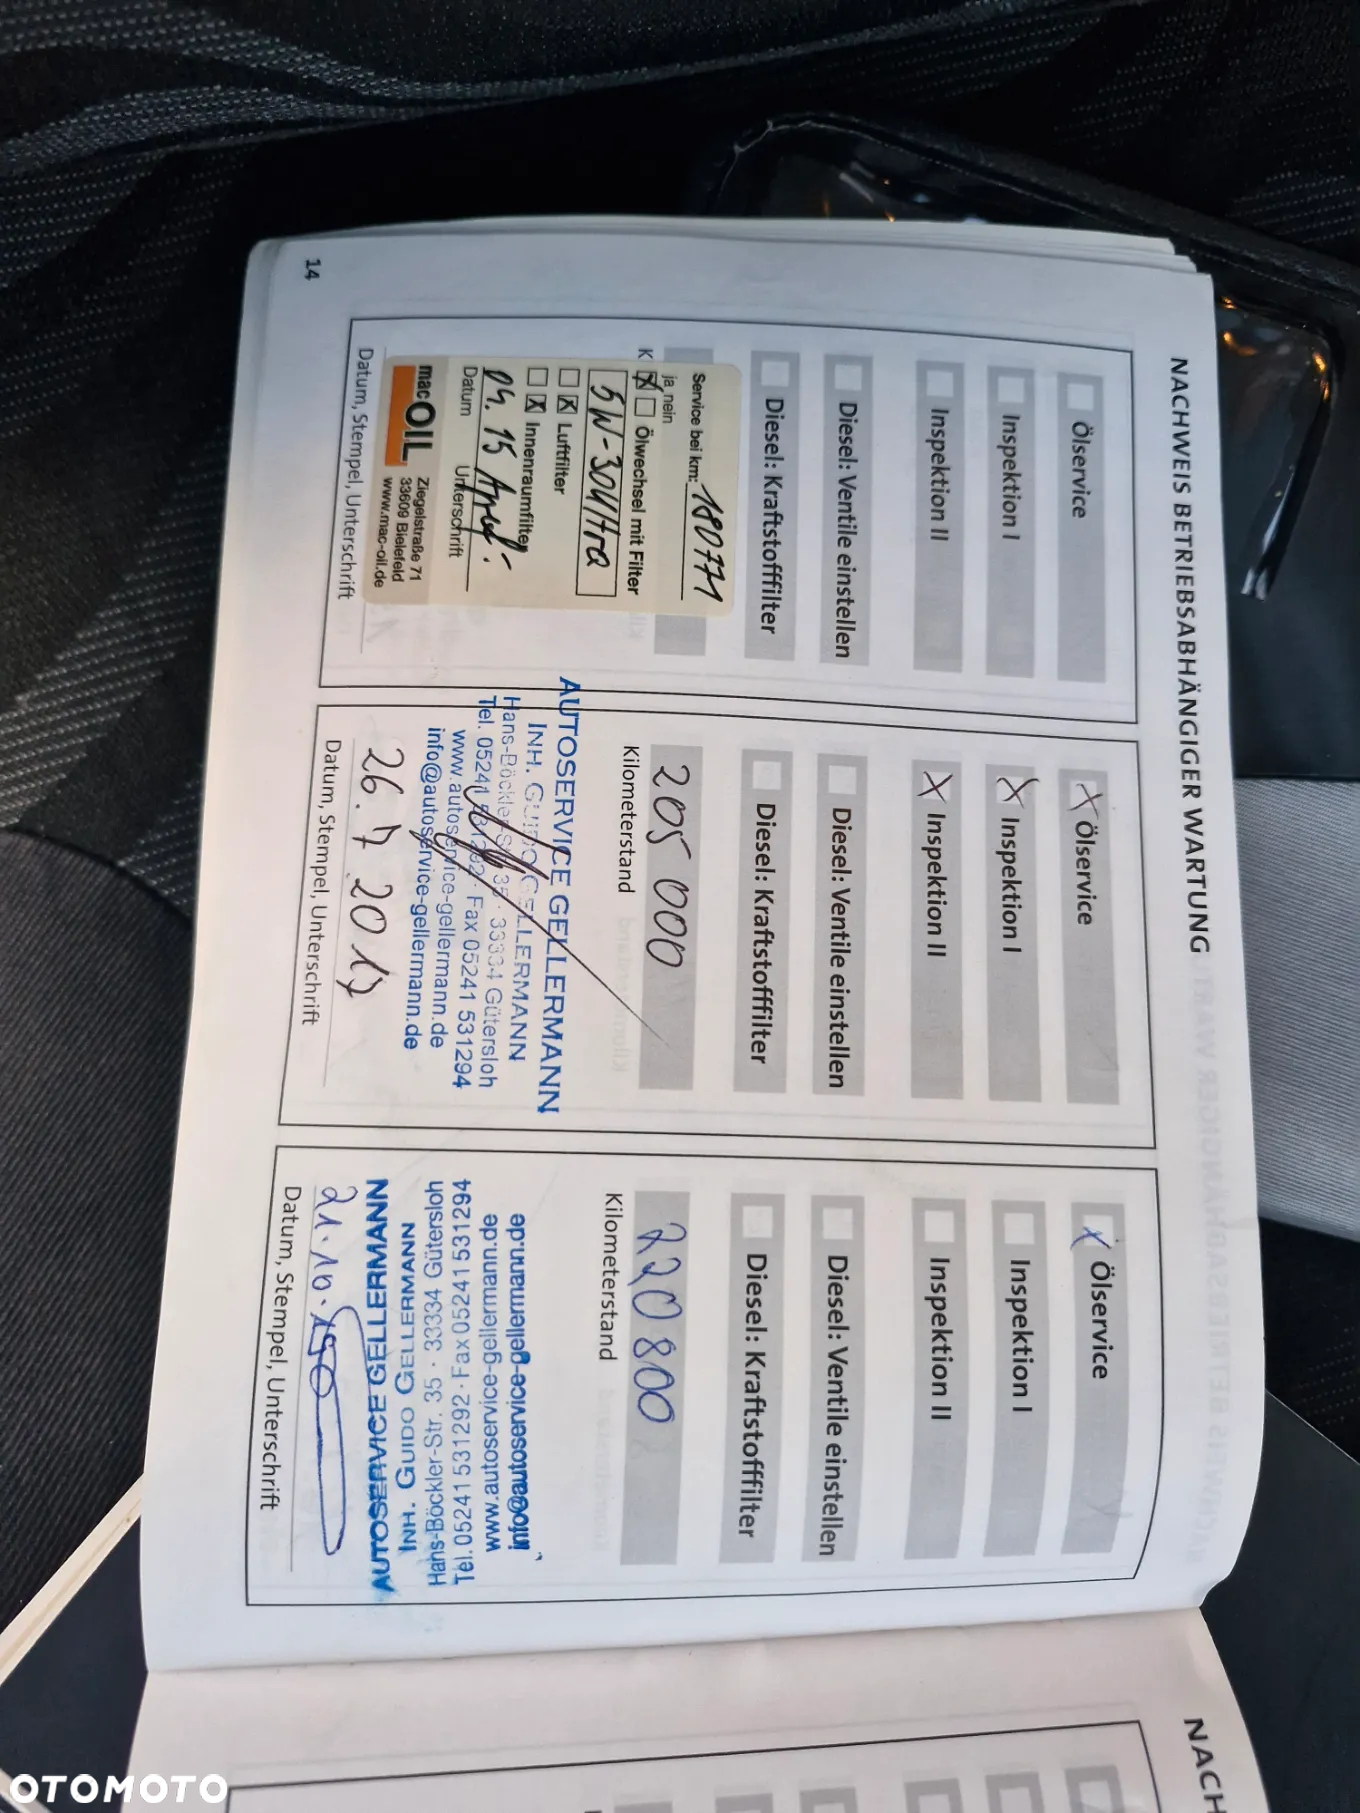 NACHWEIS BETRIEBSABHÄNGIGER WARTUNG
Ölservice
Inspektion I
Inspektion II
Diesel: Ventile einstellen
Diesel: Kraftstofffilter
Service bei km: 180771
ja nein
X Ölwechsel mit Filter
5W-30
X Luftfilter
X Innenraumfilter
04.15
Datum Unterschrift
macOIL
Ziegelstraße 71
33609 Bielefeld
www.mac-oil.de
K
Datum, Stempel, Unterschrift
14
X Ölservice
X Inspektion I
X Inspektion II
Diesel: Ventile einstellen
Diesel: Kraftstofffilter
205 000
Kilometerstand
AUTOSERVICE GELLERMANN
INH. GUIDO GELLERMANN
Hans-Böckler-Str. 35 · 33334 Gütersloh
Tel. 05241 531292 · Fax 05241 531294
www.autoservice-gellermann.de
info@autoservice-gellermann.de
26.7.2017
Datum, Stempel, Unterschrift
X Ölservice
Inspektion I
Inspektion II
Diesel: Ventile einstellen
Diesel: Kraftstofffilter
220 800
Kilometerstand
AUTOSERVICE GELLERMANN
INH. GUIDO GELLERMANN
Hans-Böckler-Str. 35 · 33334 Gütersloh
Tel. 05241 531292 · Fax 05241 531294
www.autoservice-gellermann.de
info@autoservice-gellermann.de
21.10.
Datum, Stempel, Unterschrift
NACH
OTOMOTO